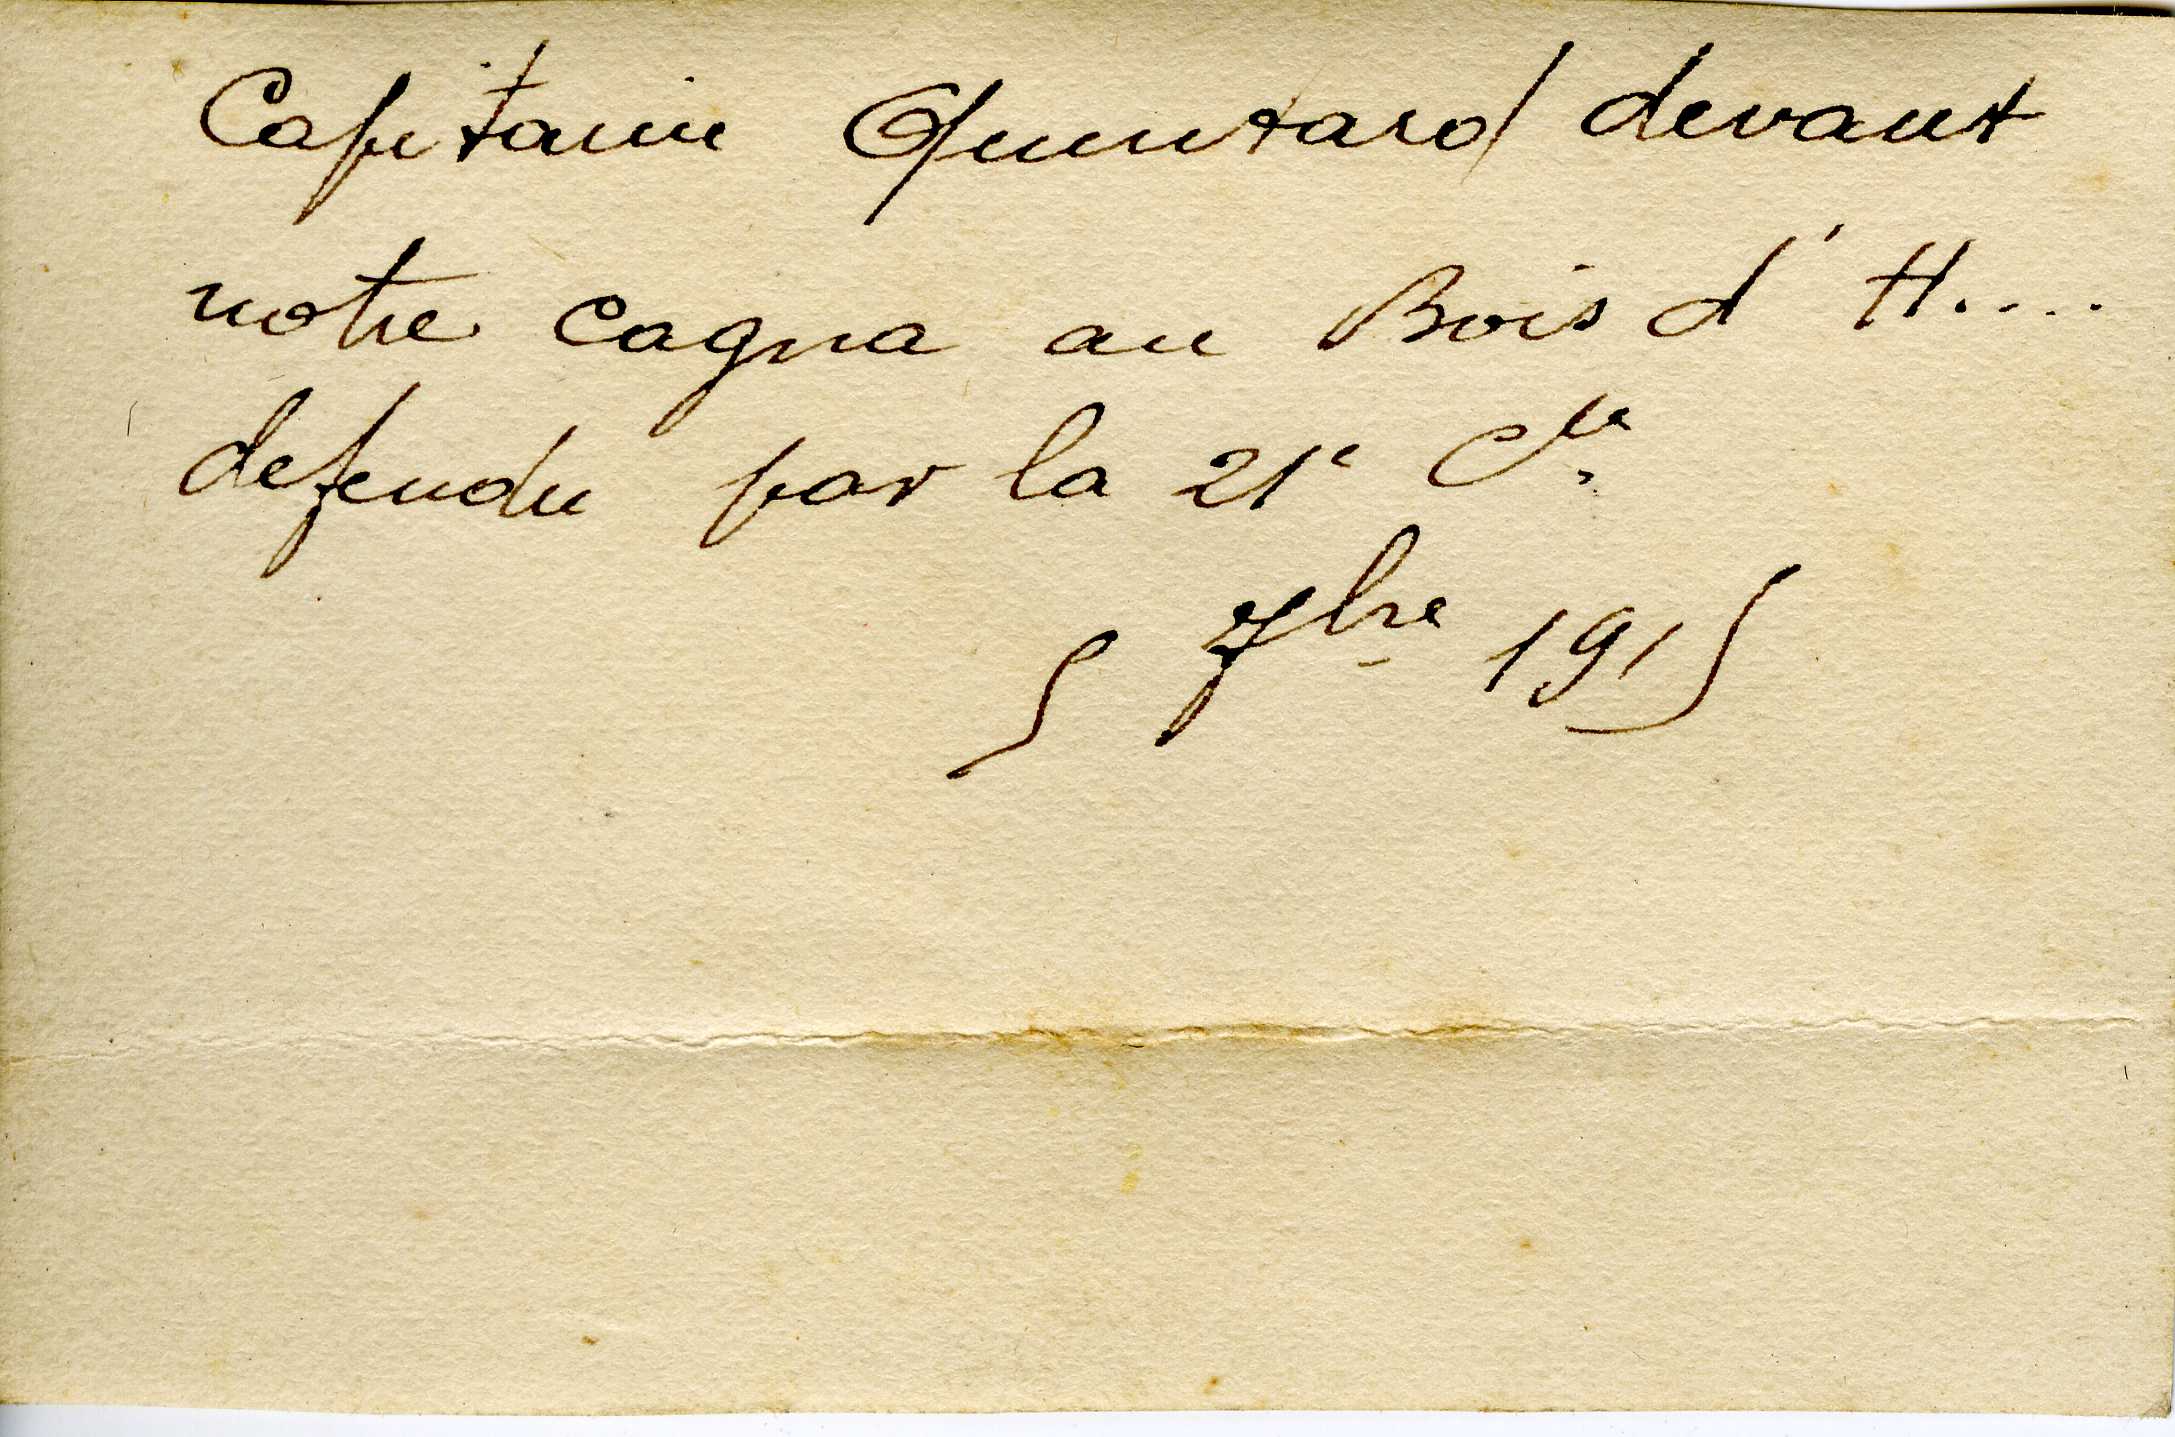 Capitaine Quintard devant
notre cagna au Bois d'H....
defendu par la 21e Cie.
5 7bre 1915